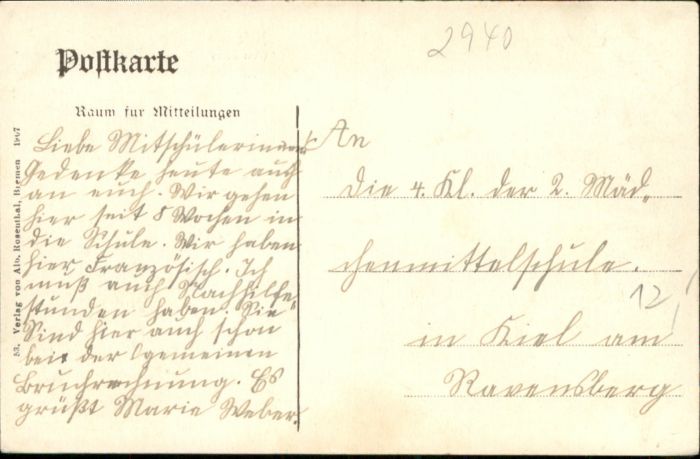 2940
Postkarte
Raum für Mitteilungen
Liebe Mitschülerinnen
Gedenke heute auch
an euch. Wir gehen
hier seit 8 Wochen in
die Schule. Wir haben
hier Französisch. Ich
muß auch Nachhilfe-
stunden haben. Sie
sind hier auch schon
bei der Algemeinen
Bruchrechnung. Es
grüßt Marie Weber.
An
die 4. Kl. der 2. Mäd-
chenmittelschule.
12
in Kiel am
Ravensberg
53. Verlag von Alb. Rosenthal, Bremen 1907